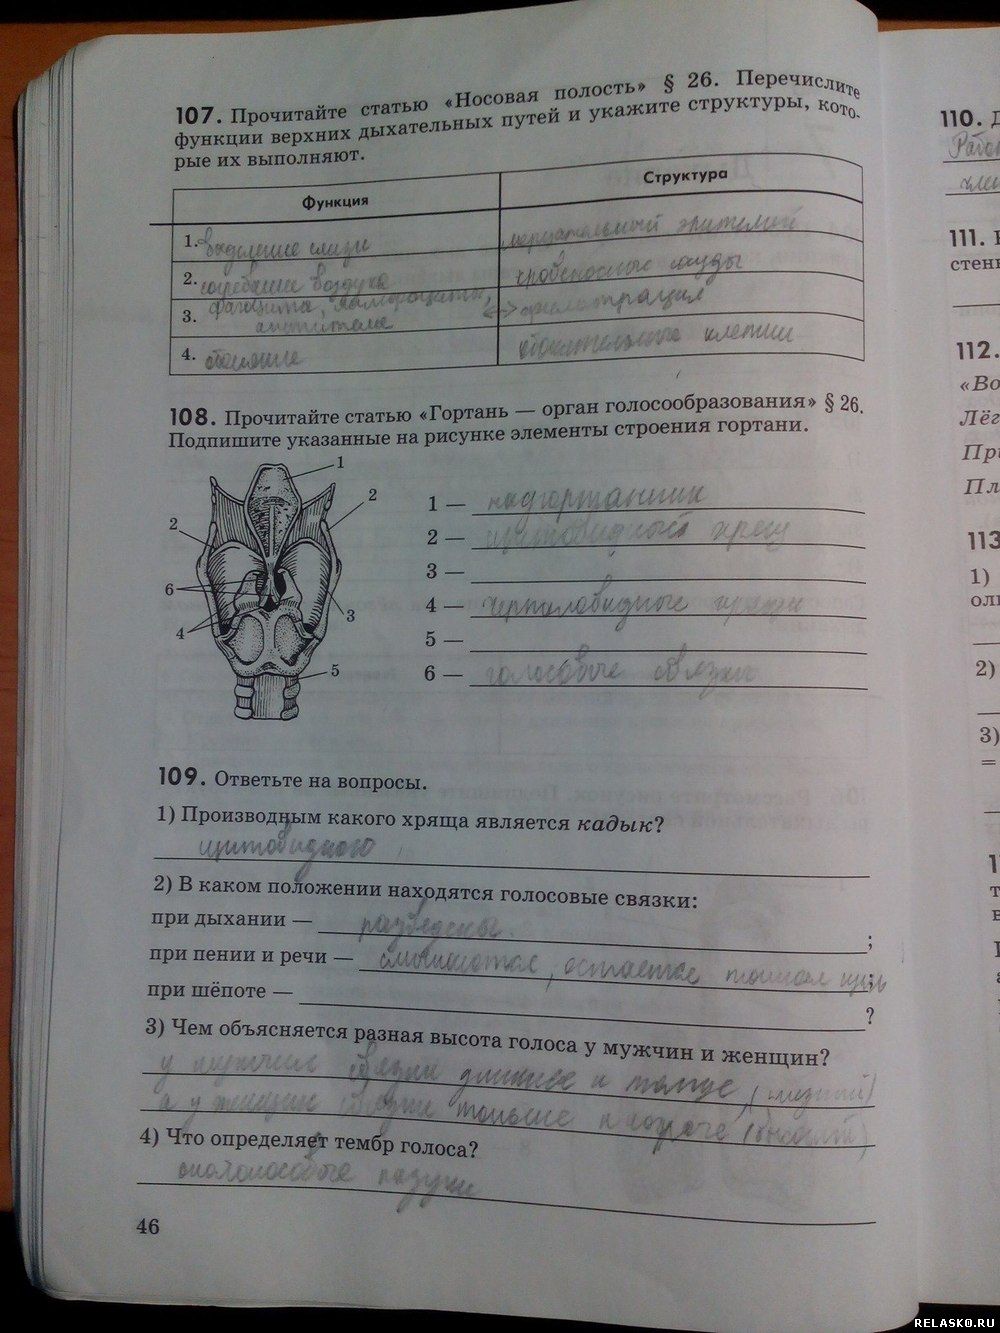 107. Прочитайте статью «Носовая полость» § 26. Перечислите
функции верхних дыхательных путей и укажите структуры, кото-
рые их выполняют.
Функция Структура
1. выделение слизи мерцательный эпителий
2. согревание воздуха кровеносные сосуды
3. фагоциты, лимфоциты,
антитела фильтрация
4. обоняние обонятельные клетки
108. Прочитайте статью «Гортань — орган голосообразования» § 26.
Подпишите указанные на рисунке элементы строения гортани.
1
2
2
6
4
3
5
1 — надгортанник
2 — щитовидный хрящ
3 —
4 — черпаловидные хрящи
5 —
6 — голосовые связки
109. Ответьте на вопросы.
1) Производным какого хряща является кадык?
щитовидного
2) В каком положении находятся голосовые связки:
при дыхании — разведены. ;
при пении и речи — смыкаются, остается тонкая щель ;
при шёпоте — ?
3) Чем объясняется разная высота голоса у мужчин и женщин?
у мужчин связки длиннее и толще (низкий)
а у женщин связки тоньше и короче (высокий)
4) Что определяет тембр голоса?
околоносовые пазухи
46
110.
111.
стен
112.
«Во
Лёг
При
Пл
113
1)
оли
2)
3)
=
RELASKO.RU